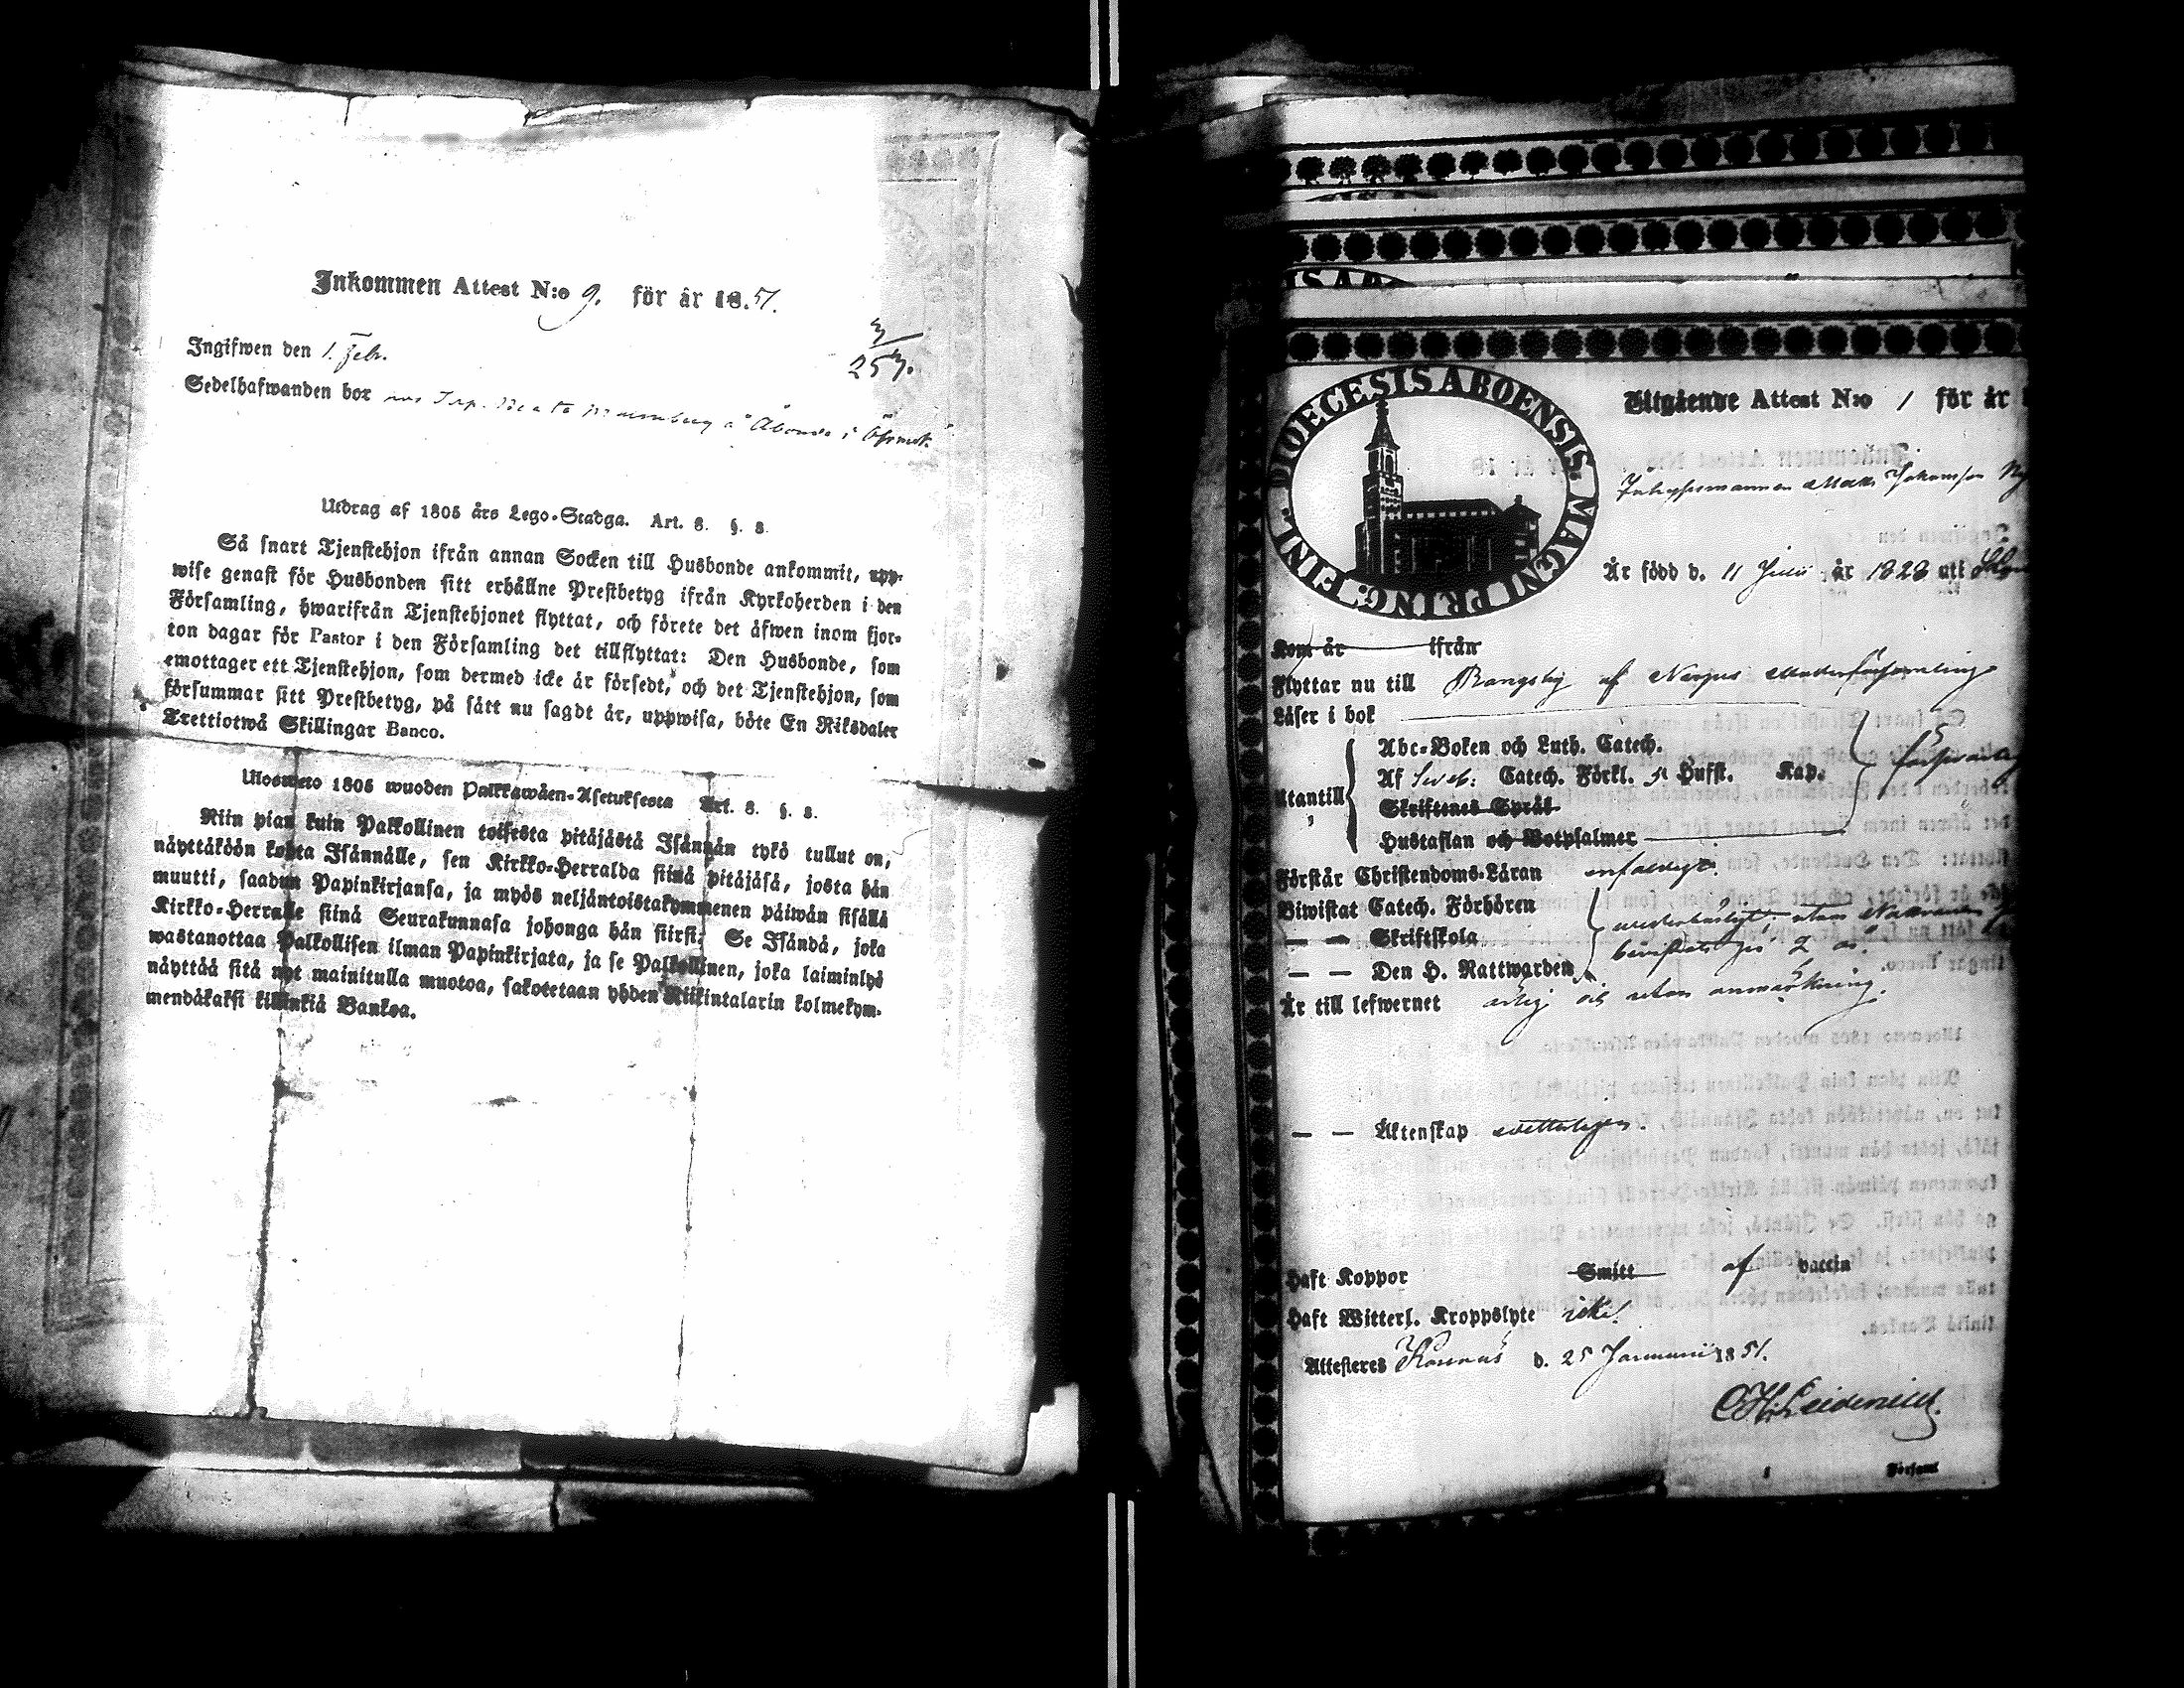 Inkommen Attest N:o 9. för år 1851.
Ingifwen den 1. Febr.
257.
Sedelhafwanden bor
Utdrag af 1805 års Lego-Stadga. Art. 8. §. 8.
Så snart Tjenstehjon ifrån annan Socken till Husbonde ankommit, upp-
wise genast för Husbonden sitt erhållne Prestbetyg ifrån Kyrkoherden i den
Församling, hwarifrån Tjenstehjonet flyttat, och förete det äfwen inom fjor-
ton dagar för Pastor i den Församling det tillflyttat: Den Husbonde, som
emottager ett Tjenstehjon, som dermed icke är försedt, och det Tjenstehjon, som
försummar sitt Prestbetyg, på sätt nu sagdt är, uppwisa, böte En Riksdaler
Trettiotwå Skillingar Banco.
Ulosweto 1805 wuoden Palkkawäen-Asetuksesta Art. 8. §. 8.
Niin pian kuin Palkollinen toisesta pitäjästä Isännän tykö tullut on,
näyttäköön kohta Isännälle, sen Kirkko-Herralda siinä pitäjäsä, josta hän
muutti, saadun Papinkirjansa, ja myös neljäntoistakymmenen päiwän sisällä
Kirkko-Herralle siinä Seurakunnasa johonga hän siirsi: Se Isändä, joka
wastanottaa Palkollisen ilman Papinkirjata, ja se Palkollinen, joka laiminlyö
näyttää sitä nyt mainitulla muotoa, sakotetaan yhden Riikintalarin kolmekym-
mendäkaksi killinkiä Bankoa.
DIOECESIS ABOENSIS. MAGNI PRINC. FINL.
Utgående Attest N:o 1 för år
Johansson
Är född d. 11 Juli år 1828 uti
Kom år ifrån
Flyttar nu till Rangsby af Nerpes Moderförsamling
Läser i bok
Utantill
Abc-Boken och Luth. Catech.
Af Sveb: Catech. Förkl. 5 Hufst. Kap.
Skriftenes Språk
Hustaflan och Botpsalmer
försvarlig
Förstår Christendoms-Läran enfaldigt.
Biwistat Catech. Förhören
— — Skriftskola
— — Den H. Nattwarden
2 år
Är till lefwernet ärlig och utan anmärkning.
— — Äktenskap
Haft Koppor Smitt af vaccin
Haft Witterl. Kroppslyte icke.
Attesteres d. 25 Januarii 1851.
Församl